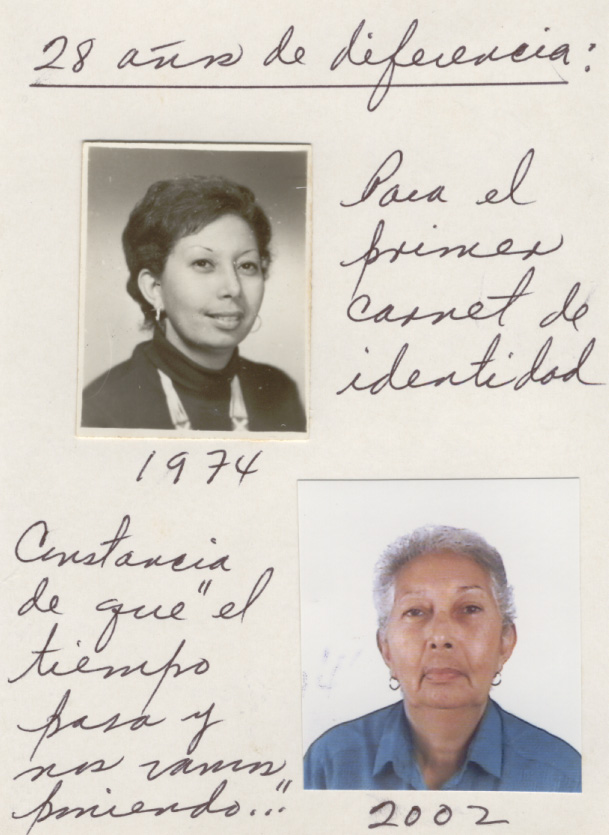 28 años de diferencia:
Para el
primer
carnet de
identidad
1974
Constancia
de que "el
tiempo
pasa y
nos vamos
poniendo..."
2002